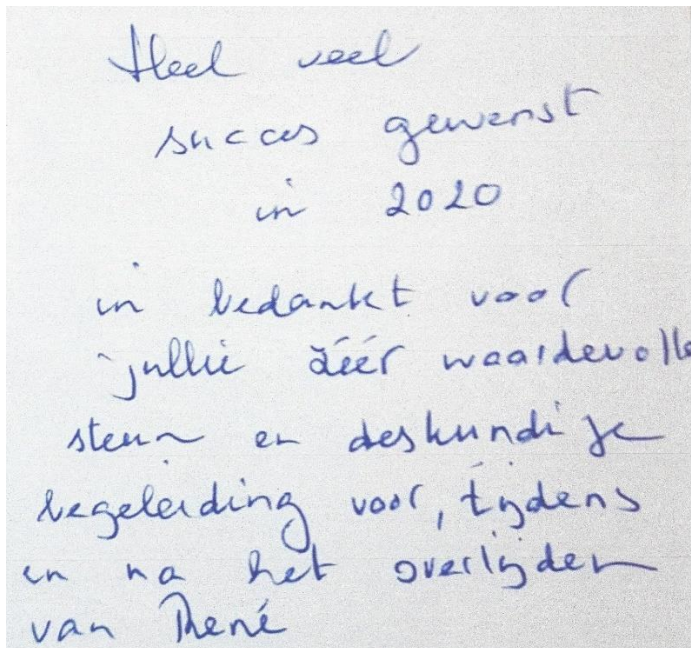 Heel veel
succes gewenst
in 2020
en bedankt voor
jullie zéér waardevolle
steun en deskundige
begeleiding voor, tijdens
en na het overlijden
van René